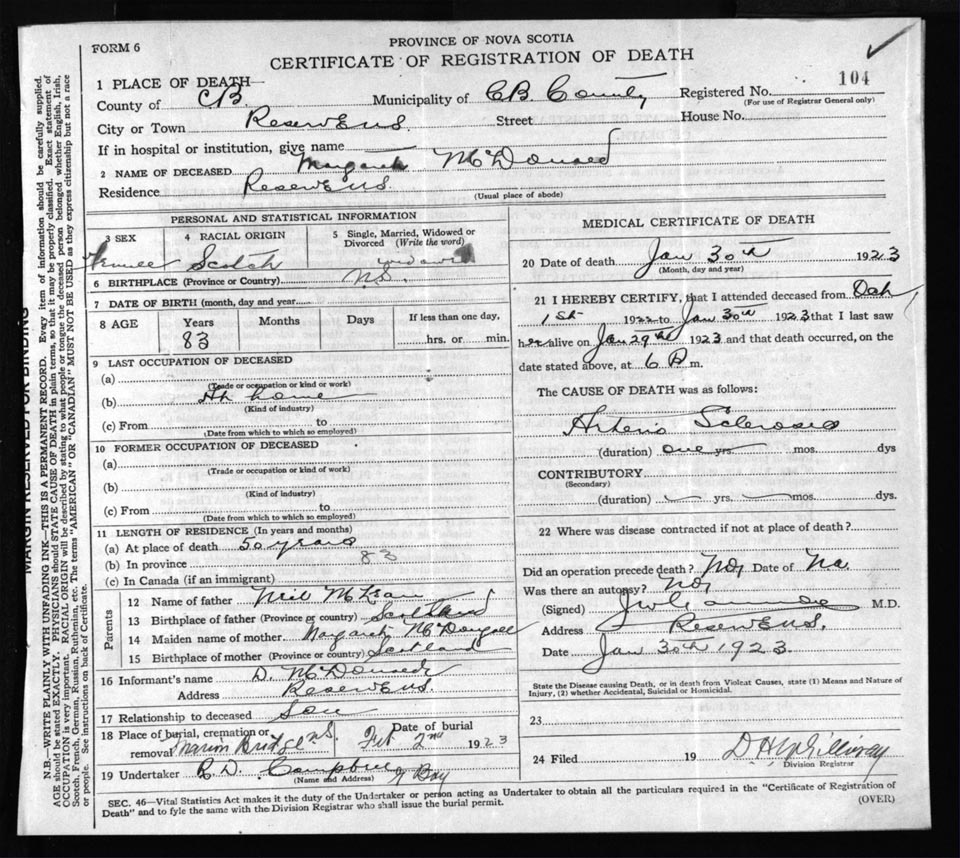 FORM 6
PROVINCE OF NOVA SCOTIA
CERTIFICATE OF REGISTRATION OF DEATH
104
1 PLACE OF DEATH
County of C.B. Municipality of C.B. County Registered No.
(For use of Registrar General only)
City or Town Reserve Street House No.
If in hospital or institution, give name
2 NAME OF DECEASED Margaret McDonald
Residence Reserve
(Usual place of abode)
PERSONAL AND STATISTICAL INFORMATION
3 SEX 4 RACIAL ORIGIN 5 Single, Married, Widowed or Divorced (Write the word)
Female Scotch
6 BIRTHPLACE (Province or Country) N.S.
7 DATE OF BIRTH (month, day and year)
8 AGE Years Months Days If less than one day,
83 hrs. or min.
9 LAST OCCUPATION OF DECEASED
(a)
(Trade or occupation or kind or work)
(b) At home
(Kind of industry)
(c) From to
(Date from which to which so employed)
10 FORMER OCCUPATION OF DECEASED
(a)
(Trade or occupation or kind of work)
(b)
(Kind of industry)
(c) From to
(Date from which to which so employed)
11 LENGTH OF RESIDENCE (In years and months)
(a) At place of death 50 years
(b) In province 83
(c) In Canada (if an immigrant)
Parents
12 Name of father Neil McLean
13 Birthplace of father (Province or country) Scotland
14 Maiden name of mother Margaret McDougall
15 Birthplace of mother (Province or country) Scotland
16 Informant's name D. McDonald
Address Reserve
17 Relationship to deceased Son
18 Place of burial, cremation or removal Marion Bridge N.S. Date of burial Feb 2nd 1923
19 Undertaker Campbell G Bay
(Name and Address)
MEDICAL CERTIFICATE OF DEATH
20 Date of death Jan 30th 1923
(Month, day and year)
21 I HEREBY CERTIFY, that I attended deceased from Oct
1st 1922 to Jan 30th 1923 that I last saw
her alive on Jan 29th 1923 and that death occurred, on the
date stated above, at 6 P m.
The CAUSE OF DEATH was as follows:
Arterio Sclerosis
(duration) one yrs. mos. dys
CONTRIBUTORY
(Secondary)
(duration) yrs. mos. dys.
22 Where was disease contracted if not at place of death?
Did an operation precede death? No, Date of No.
Was there an autopsy? No,
(Signed) M.D.
Address Reserve
Date Jan 30th 1923.
State the Disease causing Death, or in death from Violent Causes, state (1) Means and Nature of
Injury, (2) whether Accidental, Suicidal or Homicidal.
23
24 Filed 19 D H McGillivray
Division Registrar
SEC. 46—Vital Statistics Act makes it the duty of the Undertaker or person acting as Undertaker to obtain all the particulars required in the "Certificate of Registration of
Death" and to fyle the same with the Division Registrar who shall issue the burial permit.
(OVER)
MARGIN RESERVED FOR BINDING
N.B.—WRITE PLAINLY WITH UNFADING INK—THIS IS A PERMANENT RECORD. Every item of information should be carefully supplied.
AGE should be stated EXACTLY. PHYSICIANS should STATE CAUSE OF DEATH in plain terms, so that it may be properly classified. Exact statement of
OCCUPATION is very important. RACIAL ORIGIN will be described by stating to what people or tongue the deceased person belonged whether English, Irish,
Scotch, French, German, Russian, Ruthenian, etc. The terms "AMERICAN" OR "CANADIAN" MUST NOT BE USED as they express citizenship but not a race
or people. See instructions on back of Certificate.